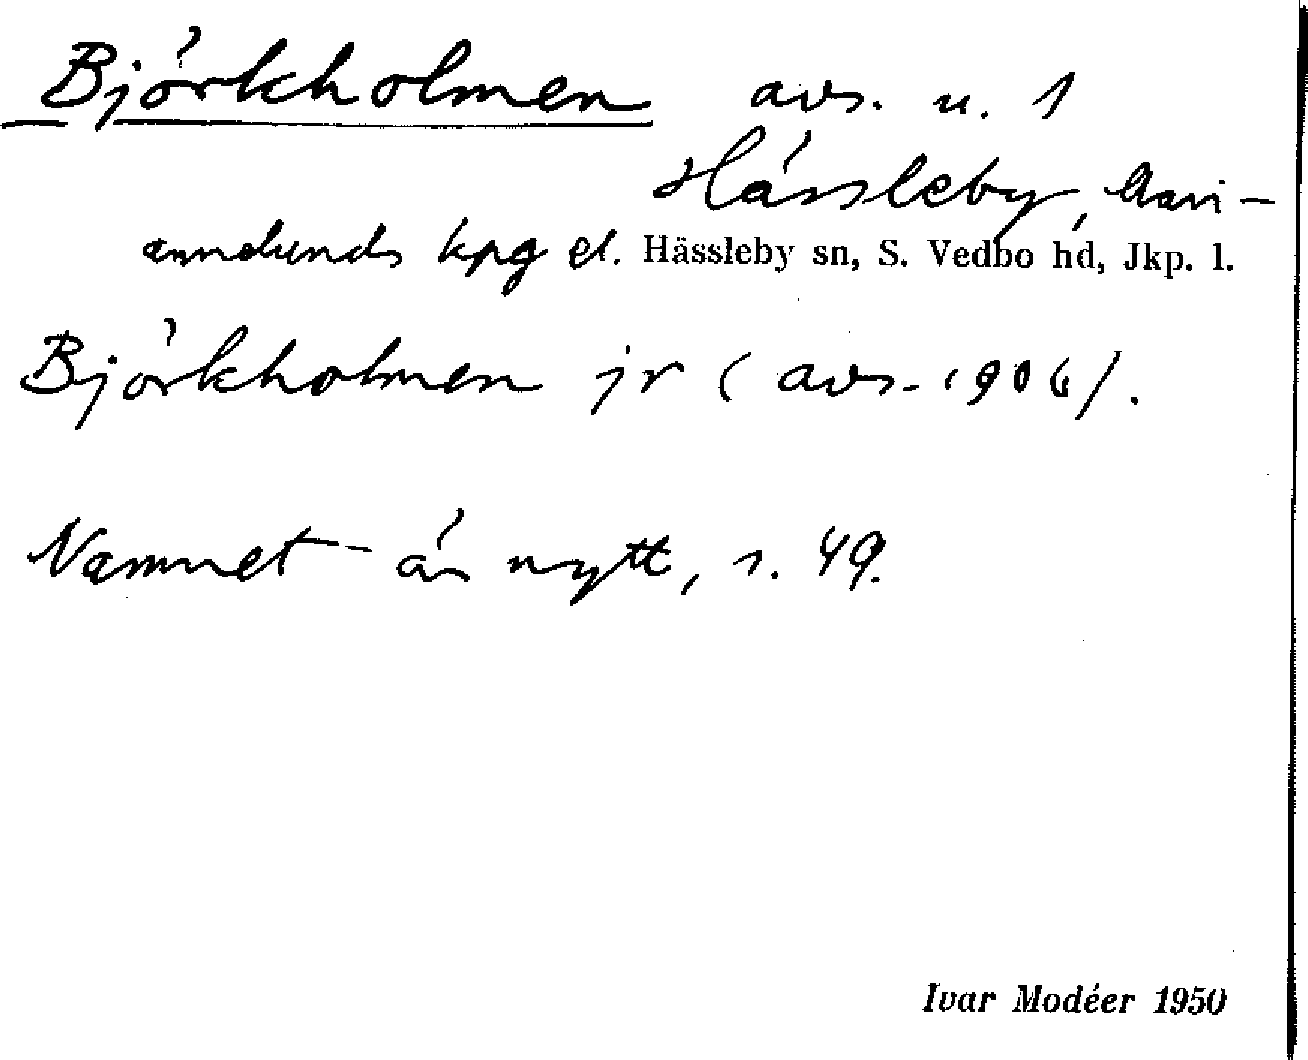 Björkholmen avs. u. 1
Hässleby, Mari-
annelunds kpg el. Hässleby sn, S. Vedbo hd, Jkp. l.
Björkholmen jr (avs. 1906).
Namnet är nytt, s. 49.
Ivar Modéer 1950